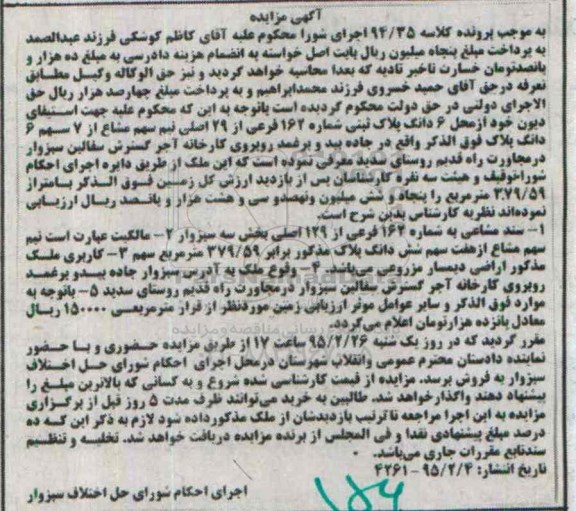 آگهی مزایده
به موجب پرونده کلاسه ۹۴/۳۵ اجرای شورا محکوم علیه آقای کاظم کوشکی فرزند عبدالصمد
به پرداخت مبلغ پنجاه میلیون ریال بابت اصل خواسته به انضمام هزینه دادرسی به مبلغ ده هزار و
پانصدتومان خسارت تاخیر تادیه که بعدا محاسبه خواهد گردید و نیز حق الوکاله وکیل مطابق
تعرفه درحق آقای حمید خسروی فرزند محمدابراهیم و به پرداخت مبلغ چهارصد هزار ریال حق
الاجرای دولتی در حق دولت محکوم گردیده است باتوجه به این که محکوم علیه جهت استیفای
دیون خود ازمحل ۶ دانگ پلاک ثبتی شماره ۱۶۲ فرعی از ۲۹ اصلی نیم سهم مشاع از ۷ سهم ۶
دانگ پلاک فوق الذکر واقع در جاده بید و برغمد روبروی کارخانه آجر گسترش سفالین سبزوار
درمجاورت راه قدیم روستای سدید معرفی نموده است که این ملک از طریق دایره اجرای احکام
شوراتوقیف و هیئت سه نفره کارشناسان پس از بازدید ارزش کل زمین فوق الذکر بامتراژ
۳۷۹/۵۹ مترمربع را پنجاه و شش میلیون ونهصدو سی و هشت هزار و پانصد ریال ارزیابی
نموده‌اند نظریه کارشناسی بدین شرح است.
۱- سند مشاعی به شماره ۱۶۲ فرعی از ۱۲۹ اصلی بخش سه سبزوار ۲- مالکیت عبارت است نیم
سهم مشاع ازهفت سهم شش دانگ پلاک مذکور برابر ۳۷۹/۵۹ مترمربع سهم ۳- کاربری ملک
مذکور اراضی دیمسار مزروعی می‌باشد. ۴- وقوع ملک به آدرس سبزوار جاده بیدو برغمد
روبروی کارخانه آجر گسترش سفالین سبزوار درمجاورت راه قدیم روستای سدید ۵- باتوجه به
موارد فوق الذکر و سایر عوامل موثر ارزیابی زمین موردنظر از قرار مترمربعی ۱۵۰۰۰۰ ریال
معادل پانزده هزارتومان اعلام می‌گردد.
مقرر گردید که در روز یک شنبه ۹۵/۲/۲۶ ساعت ۱۷ از طریق مزایده حضوری و با حضور
نماینده دادستان محترم عمومی وانقلاب شهرستان درمحل اجرای احکام شورای حل اختلاف
سبزوار به فروش برسد. مزایده از قیمت کارشناسی شده شروع و به کسانی که بالاترین مبلغ را
پیشنهاد دهند واگذارخواهد شد. طالبین به خرید می‌توانند ظرف مدت ۵ روز قبل از برگزاری
مزایده به این اجرا مراجعه تاترتیب بازدیدشان از ملک مذکورداده شود لازم به ذکر این که ده
درصد مبلغ پیشنهادی نقدا و فی المجلس از برنده مزایده دریافت خواهد شد. تخلیه و تنظیم
سندتابع مقررات جاری می‌باشد.
تاریخ انتشار: ۹۵/۲/۴ - ۴۲۶۱
اجرای احکام شورای حل اختلاف سبزوار